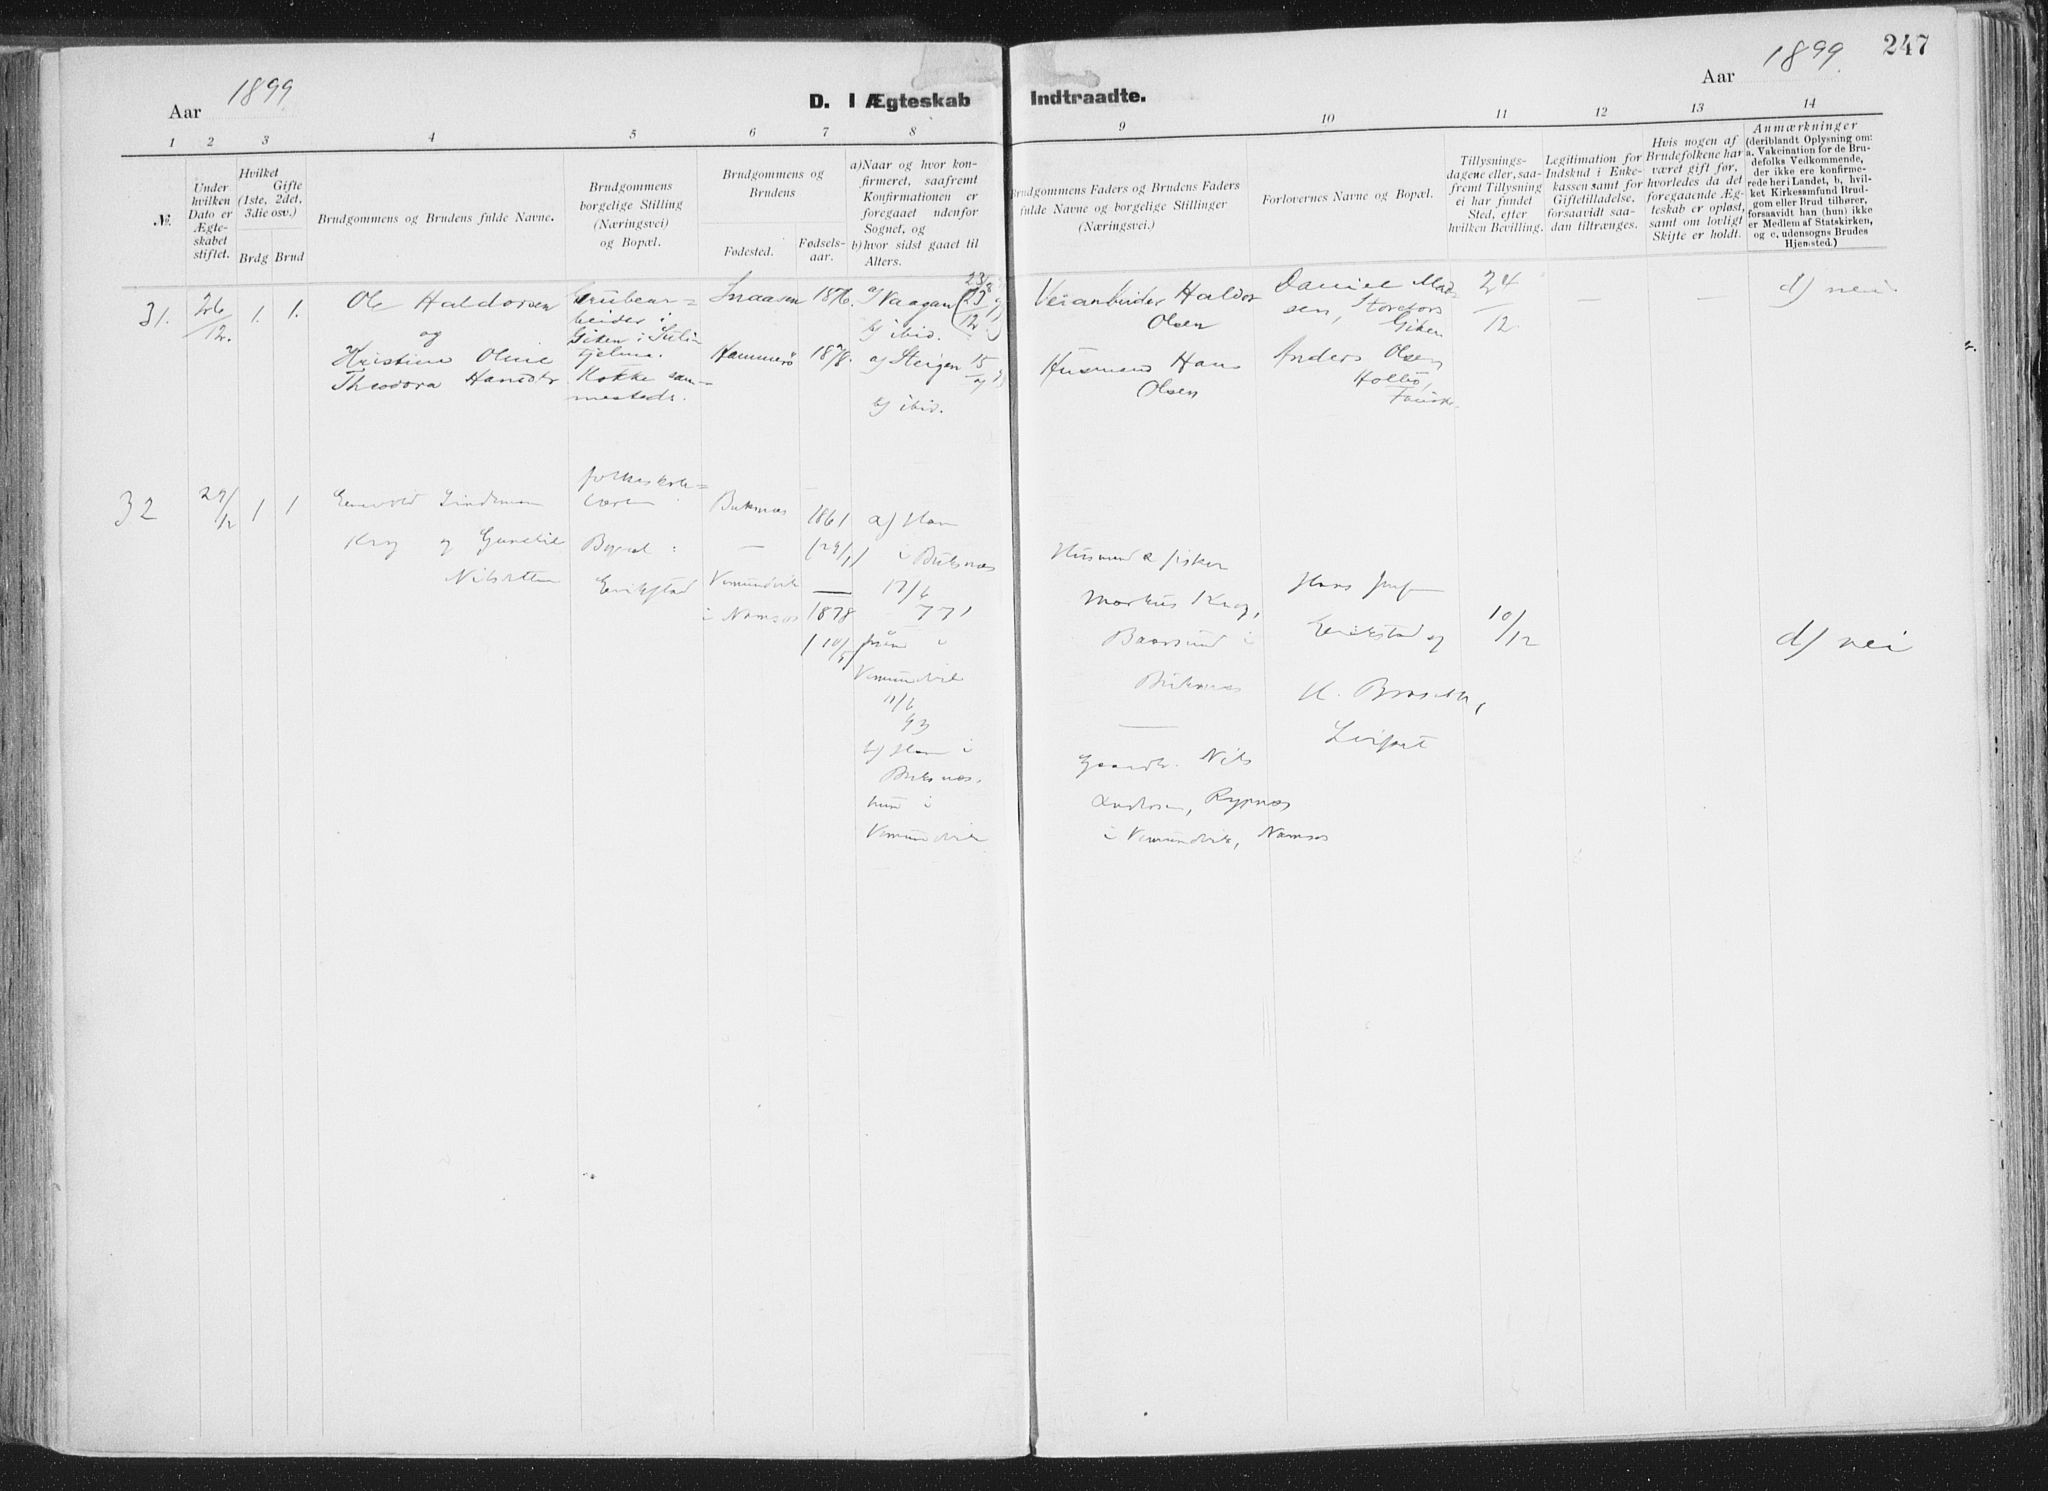 Aar 1899
D. I Ægteskab
1 2 3 4 5 6 7 8
№.
Under hvilken Dato er Ægte-skabet stiftet.
Hvilket Gifte (1ste, 2det, 3die osv.)
Brdg Brud
Brudgommens og Brudens fulde Navne.
Brudgommens borgelige Stilling (Næringsvei) og Bopæl.
Brudgommens og Brudens
Fødested.
Fødsels-aar.
a) Naar og hvor kon-firmeret, saafremt Konfirmationen er foregaaet udenfor Sognet, og
b) hvor sidst gaaet til Alters.
31. 26/12. 1. 1.
Ole Haldorsen
og
Kristine Oline
Theodora Hansdtr
Grubear=
beider i
Giken i Sulit
tjelma.
Kokke sam-
mesteds.
Snaasen 1876.
Hammerø 1878.
a) Vaagan
b) ibid.
a) Steigen 15
b) ibid.
32 29/12 1 1
Lindeman
Krog og
Nilsdatter
folkeskole=
lærer
Bopæl:
Erikstad
Buksnæs
—
Vemundvik
i Namsos
1861
(29/1)
—
1878
a) Ham
i Buksnæs
17/6
77
i
Vemundvik
11/6
93
b) Ham i
Buksnæs.
hun i
Vemundvik
Aar 1899 247
Indtraadte.
9 10 11 12 13 14
Brudgommens Faders og Brudens Faders fulde Navne og borgelige Stillinger (Næringsvei.)
Forlovernes Navne og Bopæl.
Tillysnings-dagene eller, saa-fremt Tillysning ei har fundet Sted, efter hvilken Bevilling.
Legitimation for Indskud i Enke-kassen samt for Giftetilladelse, forsaavidt saa-dan tiltrænges.
Hvis nogen af Brudefolkene har været gift før, hvorledes da det foregaaende Æg-teskab er opløst, samt om lovligt Skifte er holdt.
Anmærkninger (deriblandt Oplysning om: a. Vakcination for de Bru-defolks Vedkommende, der ikke ere konfirme-rede her i Landet, b, hvil-ket Kirkesamfund Brud-gom eller Brud tilhører, forsaavidt han (hun) ikke er Medlem af Statskirken, og c, udensogns Brudes Hjemsted.)
Veiarbeider Haldor
Olsen
Husmand Hans
Olsen
Daniel Mad-
sen, Storefors
Giken
Anders Olsen
Holtis,
Fauske.
24/12
—
—
d) nei
Husmand & fisker
Markus Krog,
Baarsund i
Buksnæs
—
Gaardbr. Nils
Andersen, Rypnæs
i Vemundvik, Namsos
Hans
Erikstad og
Leifset
10/12
d) nei